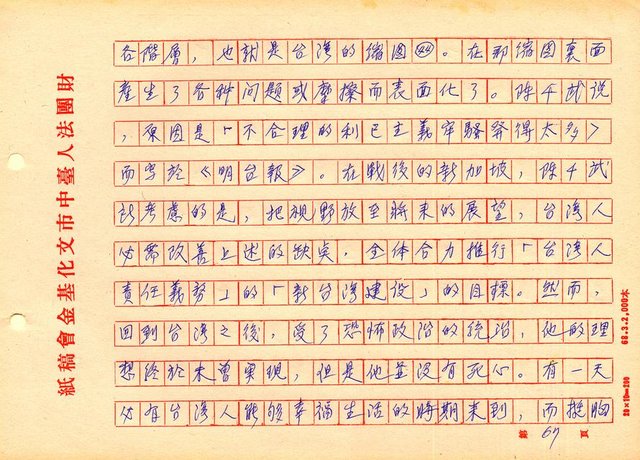 各階層，也就是台湾的缩图㊹。在那缩图裏面
產生了各种问题或摩擦而表面化了。陳千武说
，原因是「不合理的利己主義牢騷發得太多」
而寫於《明台報》。在戰後的新加坡，陳千武
所考慮的是，把視野放至將来的展望，台湾人
必需改善上述的缺点，全体合力推行「台湾人
責任義務」的「新台湾建设」的目標。然而，
回到台湾之後，受了恐怖政治的統治，他的理
想终於未曾实現，但是他並没有死心。有一天
必有台湾人能够幸福生活的時期来到，而挺胸
第 67 頁
財團法人臺中市文化基金會稿紙
68.3.2,000本
20×10=200